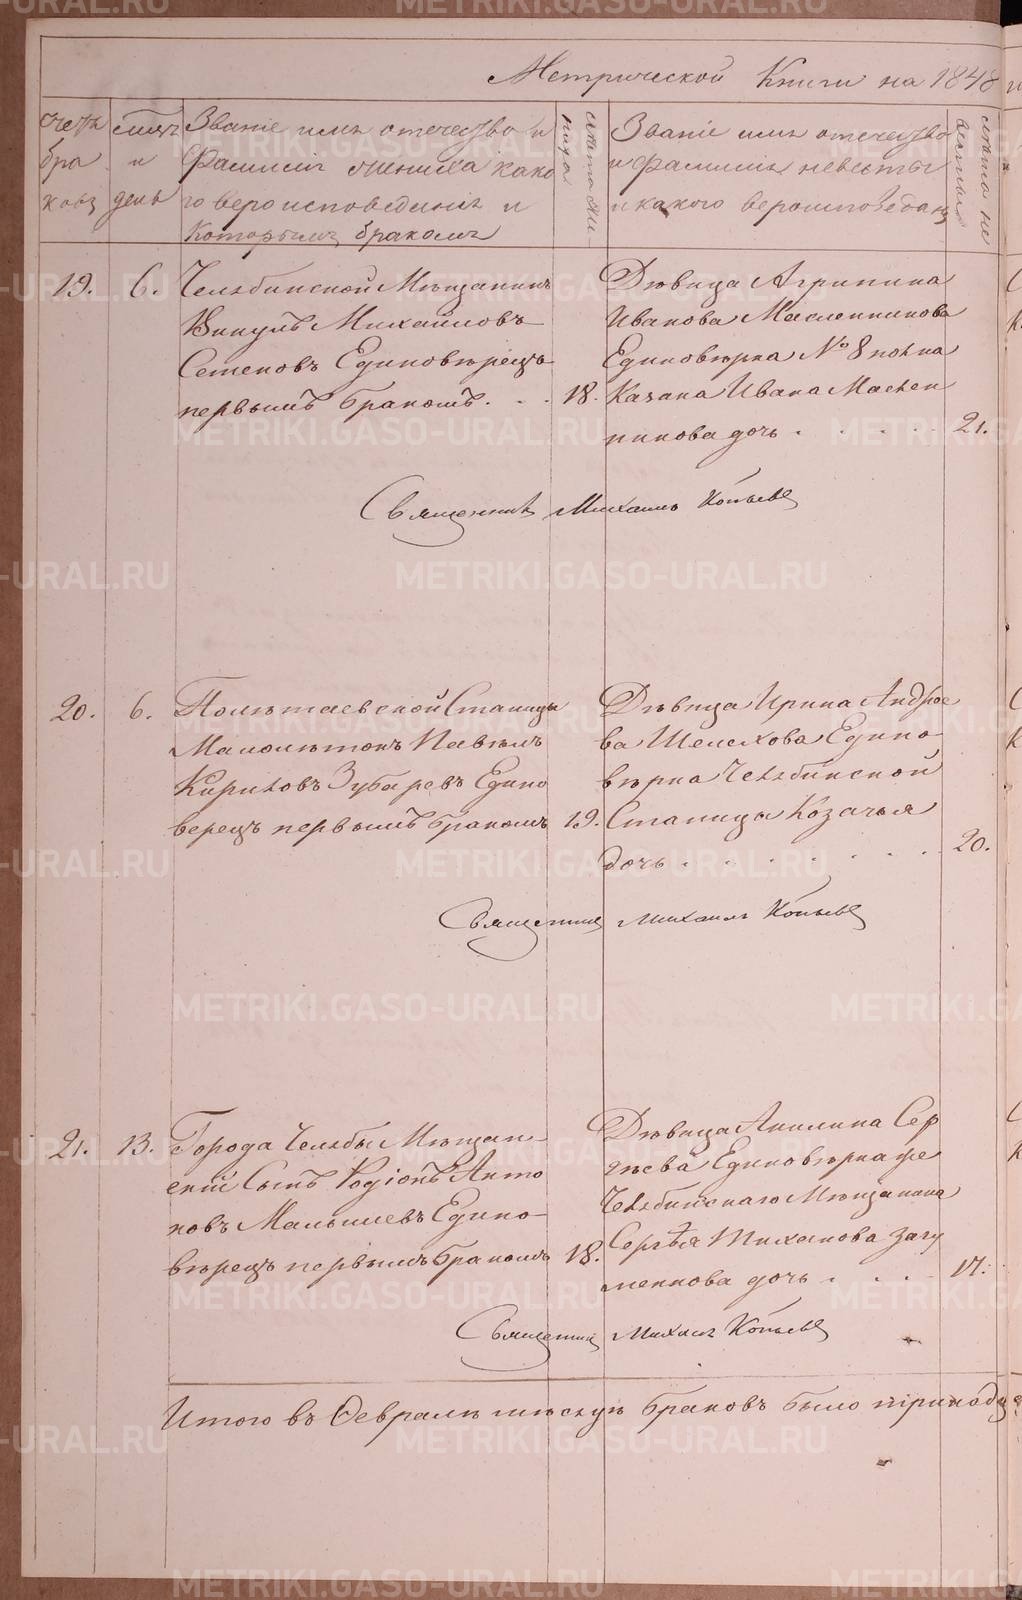 Метрической Книги на 1848
Счетъ браковъ
мѣсяцъ и день
Званіе имя отечество и
Фамилія жениха како
го вероисповеданія и
Которымъ бракомъ
лѣта жениха
Званіе имя отечество
и Фамилія невесты
и какого вероисповедан
лѣта невесты
19. 6. Челябинской Мѣщанинъ
Викулъ Михайловъ
Семеновъ Единовѣрецъ
первымъ бракомъ. . . 18.
Дѣвица Агрипина
Иванова Масленникова
Единовѣрка № 8 полка
Казака Ивана Маслен
никова дочь . . . . . 21.
Священникъ Михаилъ Копьевъ
20. 6. Полѣтаевской Станицы
Малолѣтокъ Павелъ
Кириловъ Зубаревъ Едино
верецъ первымъ бракомъ 19.
Дѣвица Ирина Андрѣе
ва Шелехова Едино
вѣрка Челябинской
Станицы Козачья
дочь . . . . . . 20.
Священник Михаилъ Копьевъ
21. 13. Города Челябы Мѣщан-
скій Сынъ Родіонъ Анто
новъ Малышевъ Едино-
вѣрецъ первымъ бракомъ 18.
Дѣвица Акилина Сер
гѣева Единовѣрка же
Челябинскаго Мѣщанина
Сергѣя Тиханова Загу
менноваго дочь . . . . 17.
Священник Михаил Копьевъ
Итого въ Февралѣ мѣсяцѣ браковъ было
METRIKI.GASO-URAL.RU